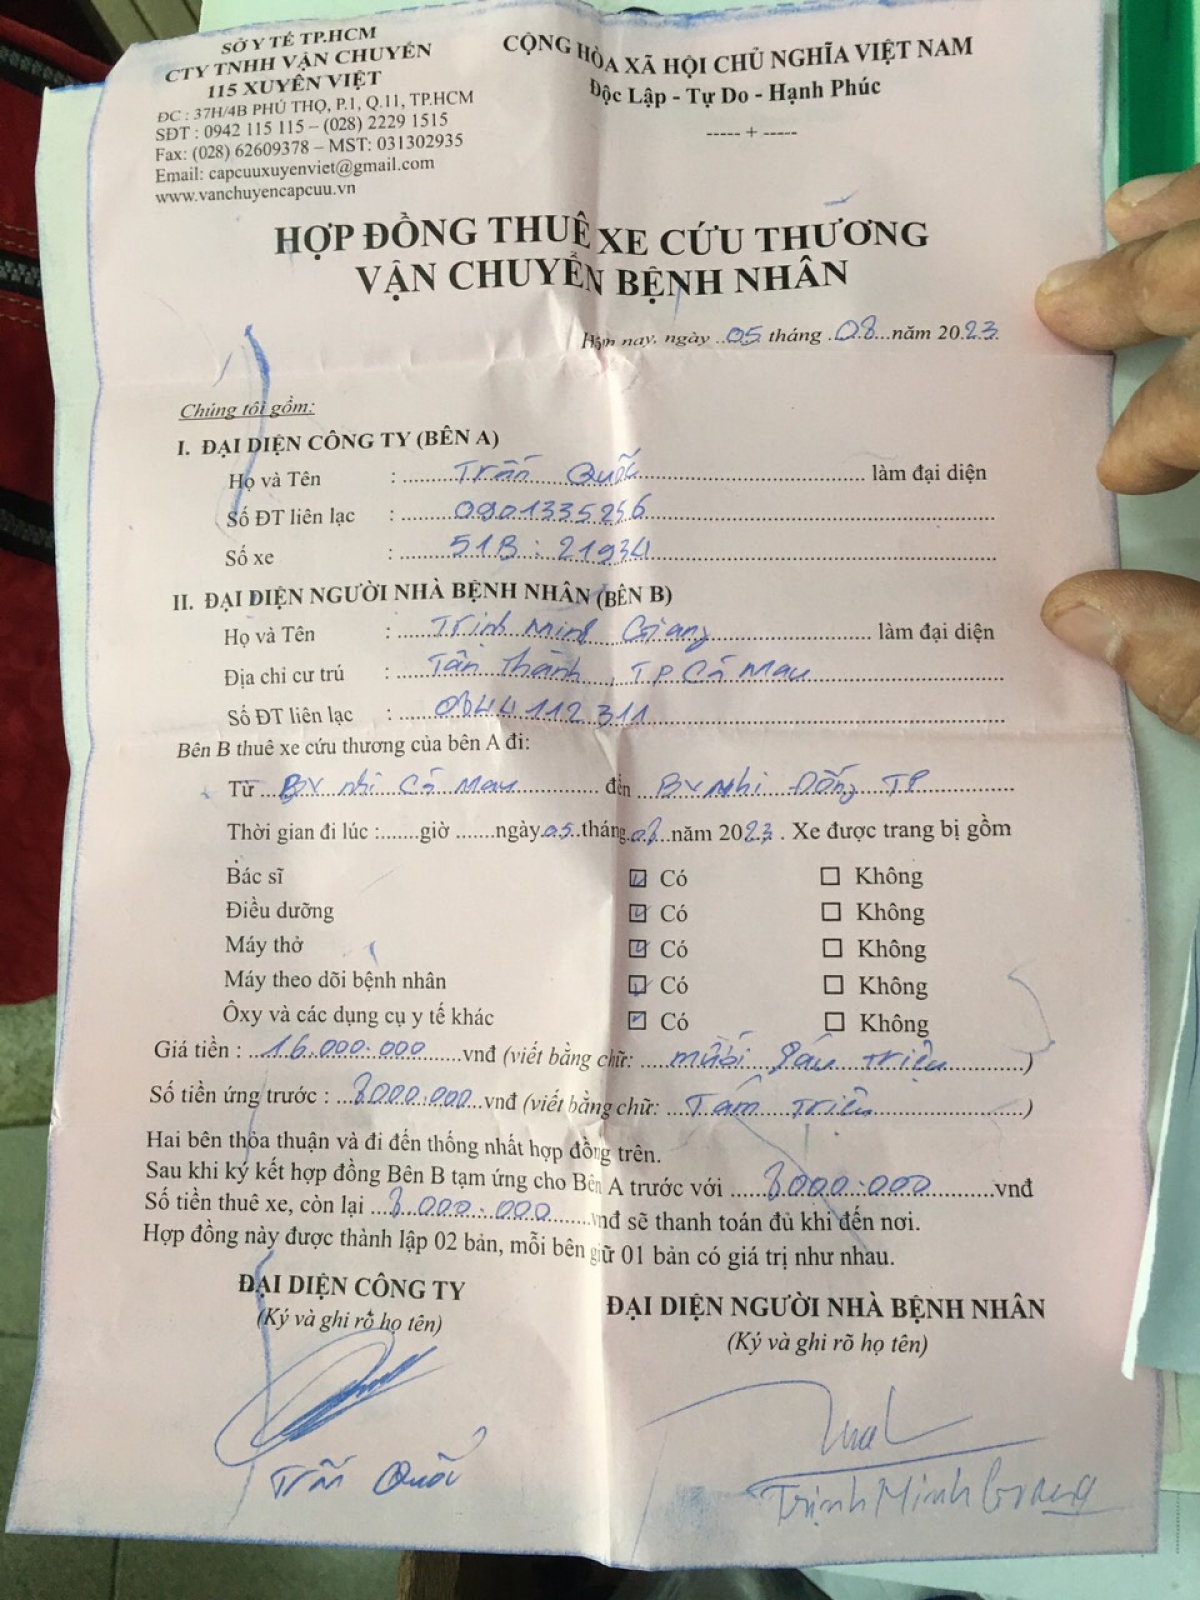 SỞ Y TẾ TP.HCM
CTY TNHH VẬN CHUYỂN
115 XUYÊN VIỆT
ĐC : 37H/4B PHÚ THỌ, P.1, Q.11, TP.HCM
SĐT : 0942 115 115 – (028) 2229 1515
Fax: (028) 62609378 – MST: 031302935
Email: capcuuxuyenviet@gmail.com
www.vanchuyencapcuu.vn
CỘNG HÒA XÃ HỘI CHỦ NGHĨA VIỆT NAM
Độc Lập - Tự Do - Hạnh Phúc
----- + -----
HỢP ĐỒNG THUÊ XE CỨU THƯƠNG
VẬN CHUYỂN BỆNH NHÂN
Hôm nay, ngày 05 tháng 08 năm 2023
Chúng tôi gồm:
I. ĐẠI DIỆN CÔNG TY (BÊN A)
Họ và Tên : Trần Quốc làm đại diện
Số ĐT liên lạc : 0901335256
Số xe : 51B : 21934
II. ĐẠI DIỆN NGƯỜI NHÀ BỆNH NHÂN (BÊN B)
Họ và Tên : Trịnh Minh Giang làm đại diện
Địa chỉ cư trú : Tân Thành, TP Cà Mau
Số ĐT liên lạc : 0844112311
Bên B thuê xe cứu thương của bên A đi:
Từ BV nhi Cà Mau đến BV Nhi Đồng TP
Thời gian đi lúc :.......giờ .......ngày 05 tháng 08 năm 2023. Xe được trang bị gồm
Bác sĩ ☑ Có ☐ Không
Điều dưỡng ☑ Có ☐ Không
Máy thở ☑ Có ☐ Không
Máy theo dõi bệnh nhân ☑ Có ☐ Không
Ôxy và các dụng cụ y tế khác ☑ Có ☐ Không
Giá tiền : 16.000.000 vnđ (viết bằng chữ: mười Sáu Triệu)
Số tiền ứng trước : 8000.000 vnđ (viết bằng chữ: Tám Triệu)
Hai bên thỏa thuận và đi đến thống nhất hợp đồng trên.
Sau khi ký kết hợp đồng Bên B tạm ứng cho Bên A trước với 8000.000 vnđ
Số tiền thuê xe, còn lại 8.000.000 vnđ sẽ thanh toán đủ khi đến nơi.
Hợp đồng này được thành lập 02 bản, mỗi bên giữ 01 bản có giá trị như nhau.
ĐẠI DIỆN CÔNG TY
(Ký và ghi rõ họ tên)
Trần Quốc
ĐẠI DIỆN NGƯỜI NHÀ BỆNH NHÂN
(Ký và ghi rõ họ tên)
Trịnh Minh Giang